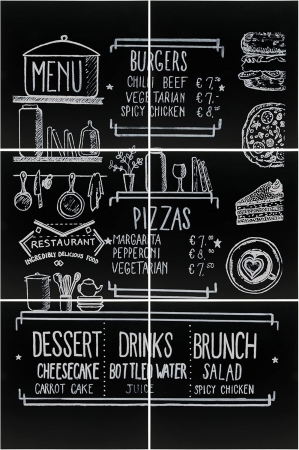 MENU
BURGERS
CHILLI BEEF € 7.-
VEGETARIAN € 7.-
SPICY CHICKEN € 8.-
RESTAURANT
INCREDIBLY DELICIOUS FOOD
PIZZAS
MARGARITA € 7.50
PEPPERONI € 8.50
VEGETARIAN € 7.50
DESSERT
CHEESECAKE
CARROT CAKE
DRINKS
BOTTLED WATER
JUICE
BRUNCH
SALAD
SPICY CHICKEN